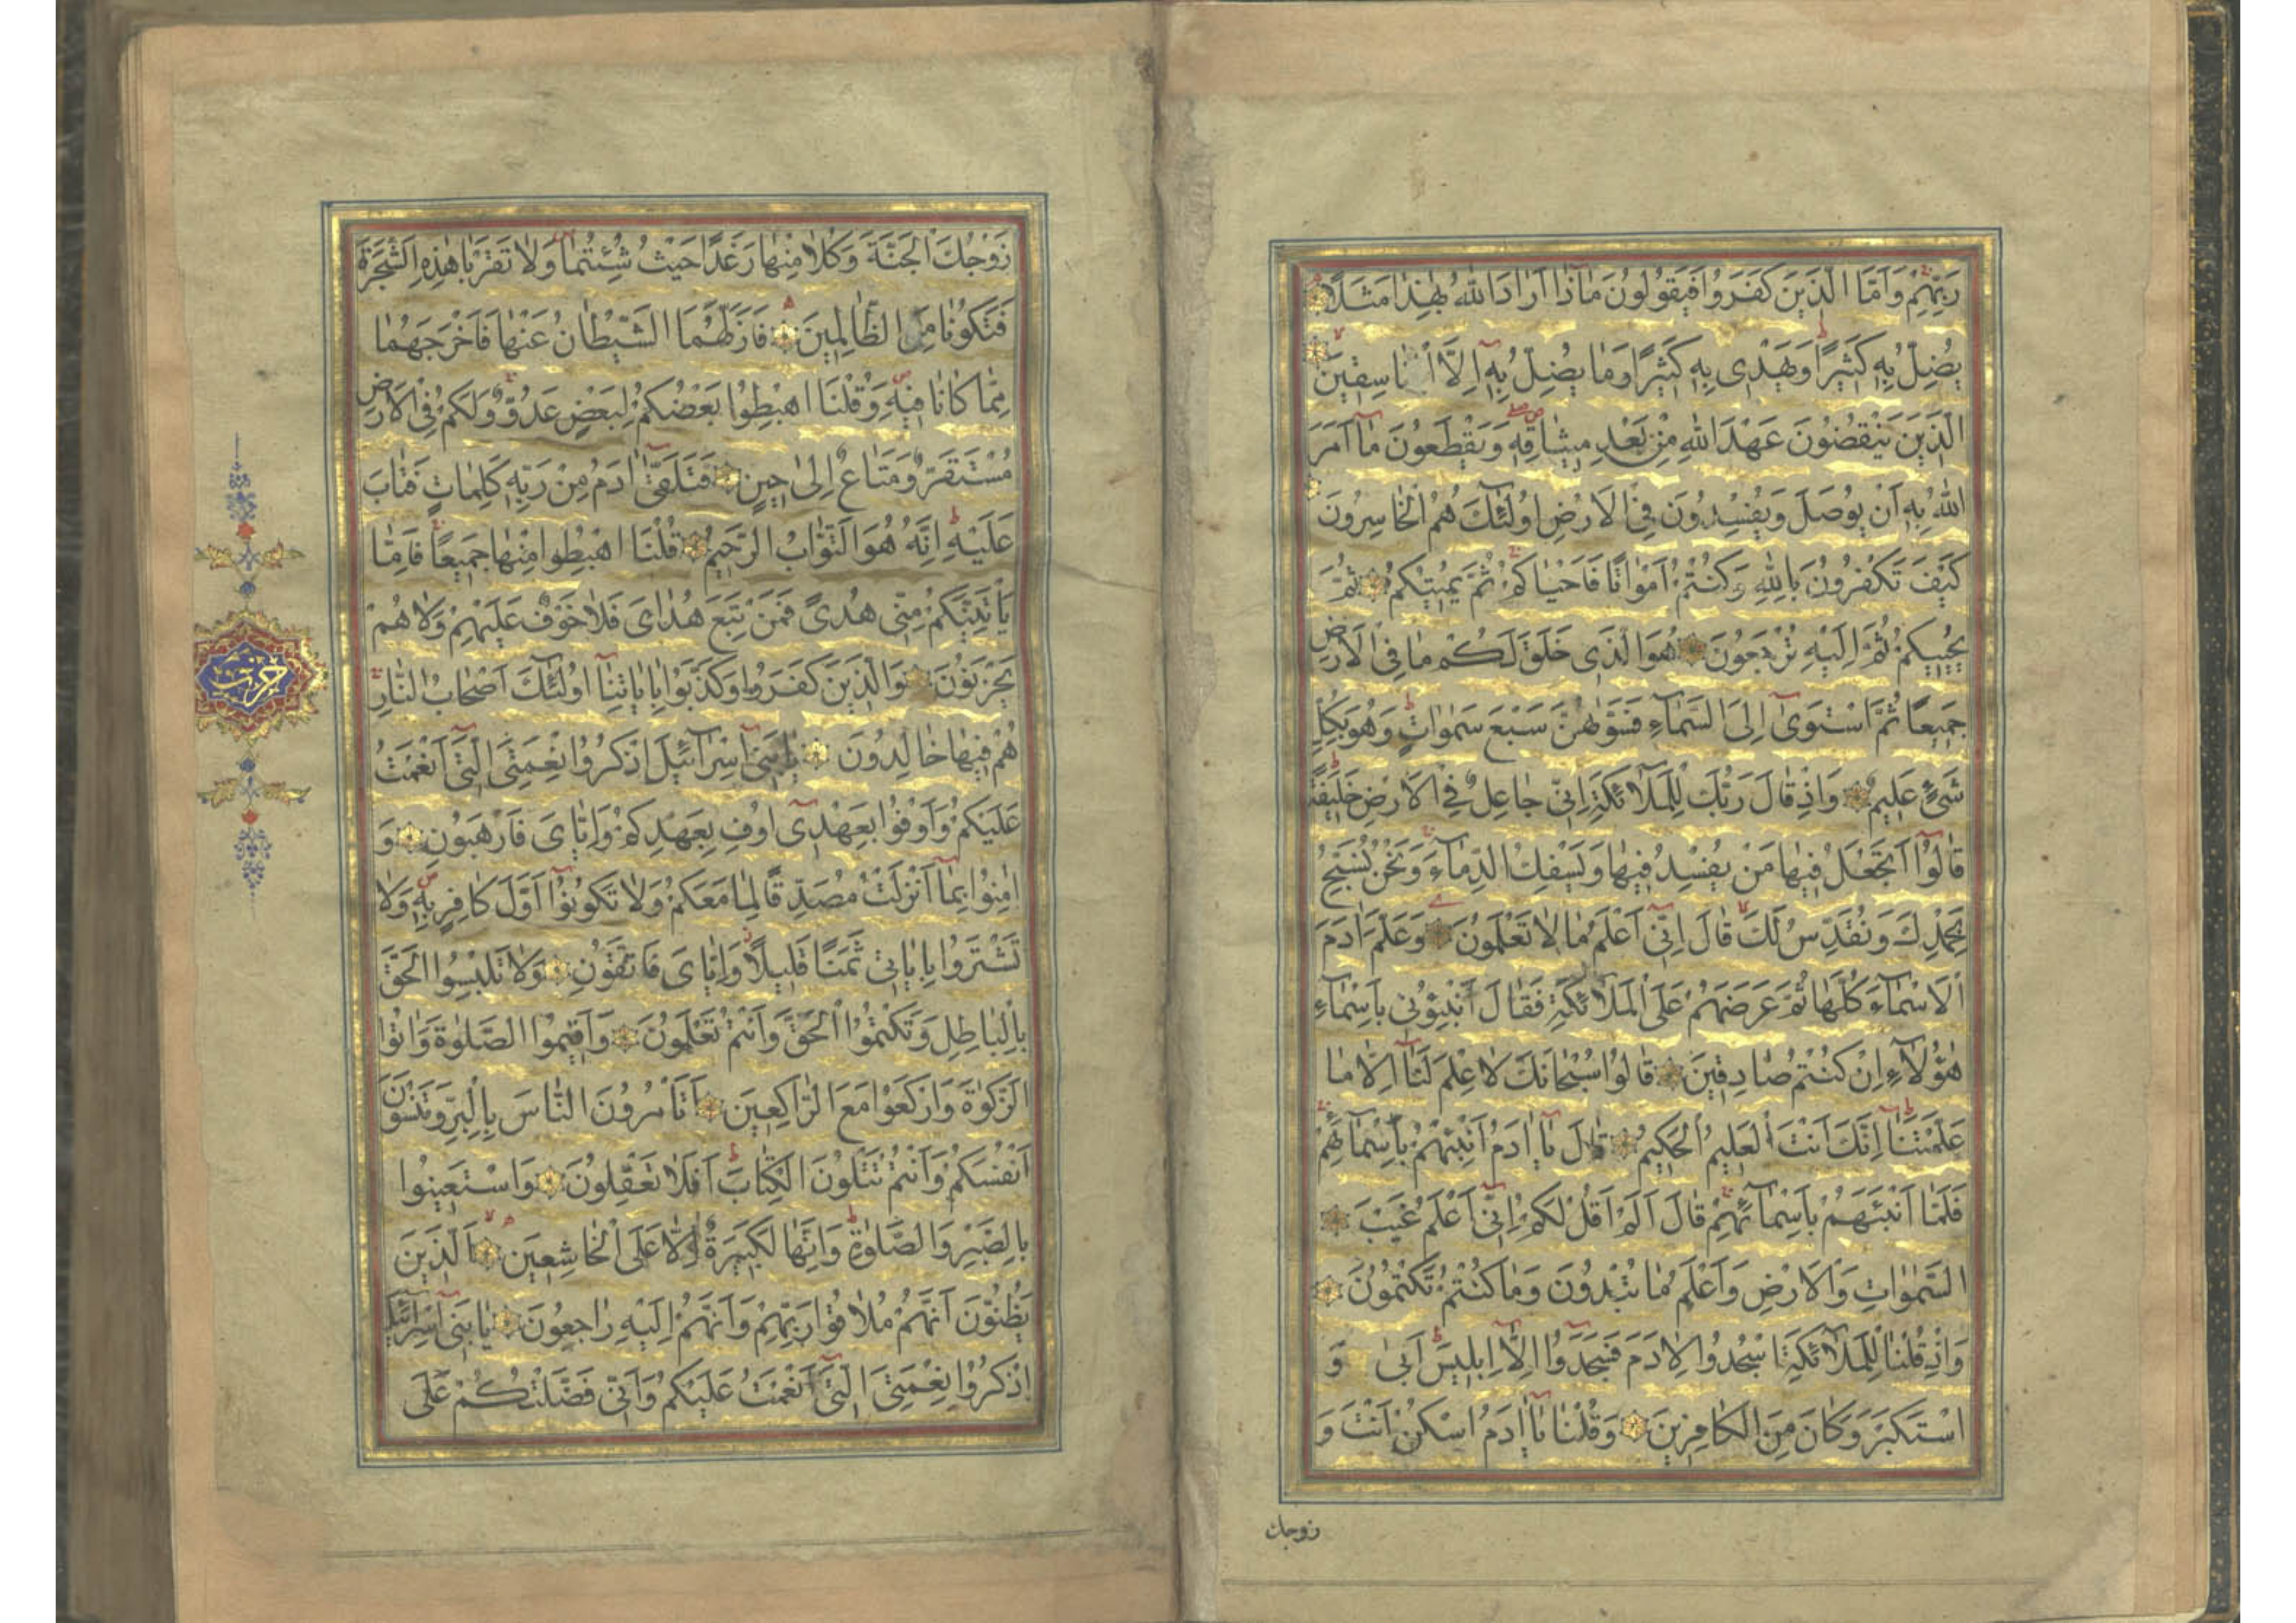 رَبِّهِمْ وَاَمَّا الَّذِينَ كَفَرُوا فَيَقُولُونَ مَاذَا اَرَادَ اللّٰهُ بِهٰذَا مَثَلًا
يُضِلُّ بِهِ كَثِيرًا وَيَهْدِى بِهِ كَثِيرًا وَمَا يُضِلُّ بِهِ اِلَّا الْفَاسِقِينَ
الَّذِينَ يَنْقُضُونَ عَهْدَ اللّٰهِ مِنْ بَعْدِ مِيثَاقِهِ وَيَقْطَعُونَ مَا اَمَرَ
اللّٰهُ بِهِ اَنْ يُوصَلَ وَيُفْسِدُونَ فِى الْاَرْضِ اُولٰئِكَ هُمُ الْخَاسِرُونَ
كَيْفَ تَكْفُرُونَ بِاللّٰهِ وَكُنْتُمْ اَمْوَاتًا فَاَحْيَاكُمْ ثُمَّ يُمِيتُكُمْ ثُمَّ
يُحْيِيكُمْ ثُمَّ اِلَيْهِ تُرْجَعُونَ هُوَ الَّذِى خَلَقَ لَكُمْ مَا فِى الْاَرْضِ
جَمِيعًا ثُمَّ اسْتَوٰى اِلَى السَّمَاءِ فَسَوّٰهُنَّ سَبْعَ سَمٰوَاتٍ وَهُوَ بِكُلِّ
شَىْءٍ عَلِيمٌ وَاِذْ قَالَ رَبُّكَ لِلْمَلَائِكَةِ اِنِّى جَاعِلٌ فِى الْاَرْضِ خَلِيفَةً
قَالُوا اَتَجْعَلُ فِيهَا مَنْ يُفْسِدُ فِيهَا وَيَسْفِكُ الدِّمَاءَ وَنَحْنُ نُسَبِّحُ
بِحَمْدِكَ وَنُقَدِّسُ لَكَ قَالَ اِنِّى اَعْلَمُ مَا لَا تَعْلَمُونَ وَعَلَّمَ اٰدَمَ
الْاَسْمَاءَ كُلَّهَا ثُمَّ عَرَضَهُمْ عَلَى الْمَلَائِكَةِ فَقَالَ اَنْبِئُونِى بِاَسْمَاءِ
هٰؤُلَاءِ اِنْ كُنْتُمْ صَادِقِينَ قَالُوا سُبْحَانَكَ لَا عِلْمَ لَنَا اِلَّا مَا
عَلَّمْتَنَا اِنَّكَ اَنْتَ الْعَلِيمُ الْحَكِيمُ قَالَ يَا اٰدَمُ اَنْبِئْهُمْ بِاَسْمَائِهِمْ
فَلَمَّا اَنْبَئَهُمْ بِاَسْمَائِهِمْ قَالَ اَلَمْ اَقُلْ لَكُمْ اِنِّى اَعْلَمُ غَيْبَ
السَّمٰوَاتِ وَالْاَرْضِ وَاَعْلَمُ مَا تُبْدُونَ وَمَا كُنْتُمْ تَكْتُمُونَ
وَاِذْ قُلْنَا لِلْمَلَائِكَةِ اسْجُدُوا لِاٰدَمَ فَسَجَدُوا اِلَّا اِبْلِيسَ اَبٰى وَ
اسْتَكْبَرَ وَكَانَ مِنَ الْكَافِرِينَ وَقُلْنَا يَا اٰدَمُ اسْكُنْ اَنْتَ وَ
زوجك
زَوْجُكَ الْجَنَّةَ وَكُلَا مِنْهَا رَغَدًا حَيْثُ شِئْتُمَا وَلَا تَقْرَبَا هٰذِهِ الشَّجَرَةَ
فَتَكُونَا مِنَ الظَّالِمِينَ فَاَزَلَّهُمَا الشَّيْطَانُ عَنْهَا فَاَخْرَجَهُمَا
مِمَّا كَانَا فِيهِ وَقُلْنَا اهْبِطُوا بَعْضُكُمْ لِبَعْضٍ عَدُوٌّ وَلَكُمْ فِى الْاَرْضِ
مُسْتَقَرٌّ وَمَتَاعٌ اِلٰى حِينٍ فَتَلَقّٰى اٰدَمُ مِنْ رَبِّهِ كَلِمَاتٍ فَتَابَ
عَلَيْهِ اِنَّهُ هُوَ التَّوَّابُ الرَّحِيمُ قُلْنَا اهْبِطُوا مِنْهَا جَمِيعًا فَاِمَّا
يَاْتِيَنَّكُمْ مِنِّى هُدًى فَمَنْ تَبِعَ هُدَاىَ فَلَا خَوْفٌ عَلَيْهِمْ وَلَا هُمْ
يَحْزَنُونَ وَالَّذِينَ كَفَرُوا وَكَذَّبُوا بِاٰيَاتِنَا اُولٰئِكَ اَصْحَابُ النَّارِ
هُمْ فِيهَا خَالِدُونَ يَا بَنِى اِسْرَائِيلَ اذْكُرُوا نِعْمَتِىَ الَّتِى اَنْعَمْتُ
عَلَيْكُمْ وَاَوْفُوا بِعَهْدِى اُوفِ بِعَهْدِكُمْ وَاِيَّاىَ فَارْهَبُونِ وَ
اٰمِنُوا بِمَا اَنْزَلْتُ مُصَدِّقًا لِمَا مَعَكُمْ وَلَا تَكُونُوا اَوَّلَ كَافِرٍ بِهِ وَلَا
تَشْتَرُوا بِاٰيَاتِى ثَمَنًا قَلِيلًا وَاِيَّاىَ فَاتَّقُونِ وَلَا تَلْبِسُوا الْحَقَّ
بِالْبَاطِلِ وَتَكْتُمُوا الْحَقَّ وَاَنْتُمْ تَعْلَمُونَ وَاَقِيمُوا الصَّلٰوةَ وَاٰتُوا
الزَّكٰوةَ وَارْكَعُوا مَعَ الرَّاكِعِينَ اَتَاْمُرُونَ النَّاسَ بِالْبِرِّ وَتَنْسَوْنَ
اَنْفُسَكُمْ وَاَنْتُمْ تَتْلُونَ الْكِتَابَ اَفَلَا تَعْقِلُونَ وَاسْتَعِينُوا
بِالصَّبْرِ وَالصَّلٰوةِ وَاِنَّهَا لَكَبِيرَةٌ اِلَّا عَلَى الْخَاشِعِينَ الَّذِينَ
يَظُنُّونَ اَنَّهُمْ مُلَاقُوا رَبِّهِمْ وَاَنَّهُمْ اِلَيْهِ رَاجِعُونَ يَا بَنِى اِسْرَائِيلَ
اذْكُرُوا نِعْمَتِىَ الَّتِى اَنْعَمْتُ عَلَيْكُمْ وَاَنِّى فَضَّلْتُكُمْ عَلَى